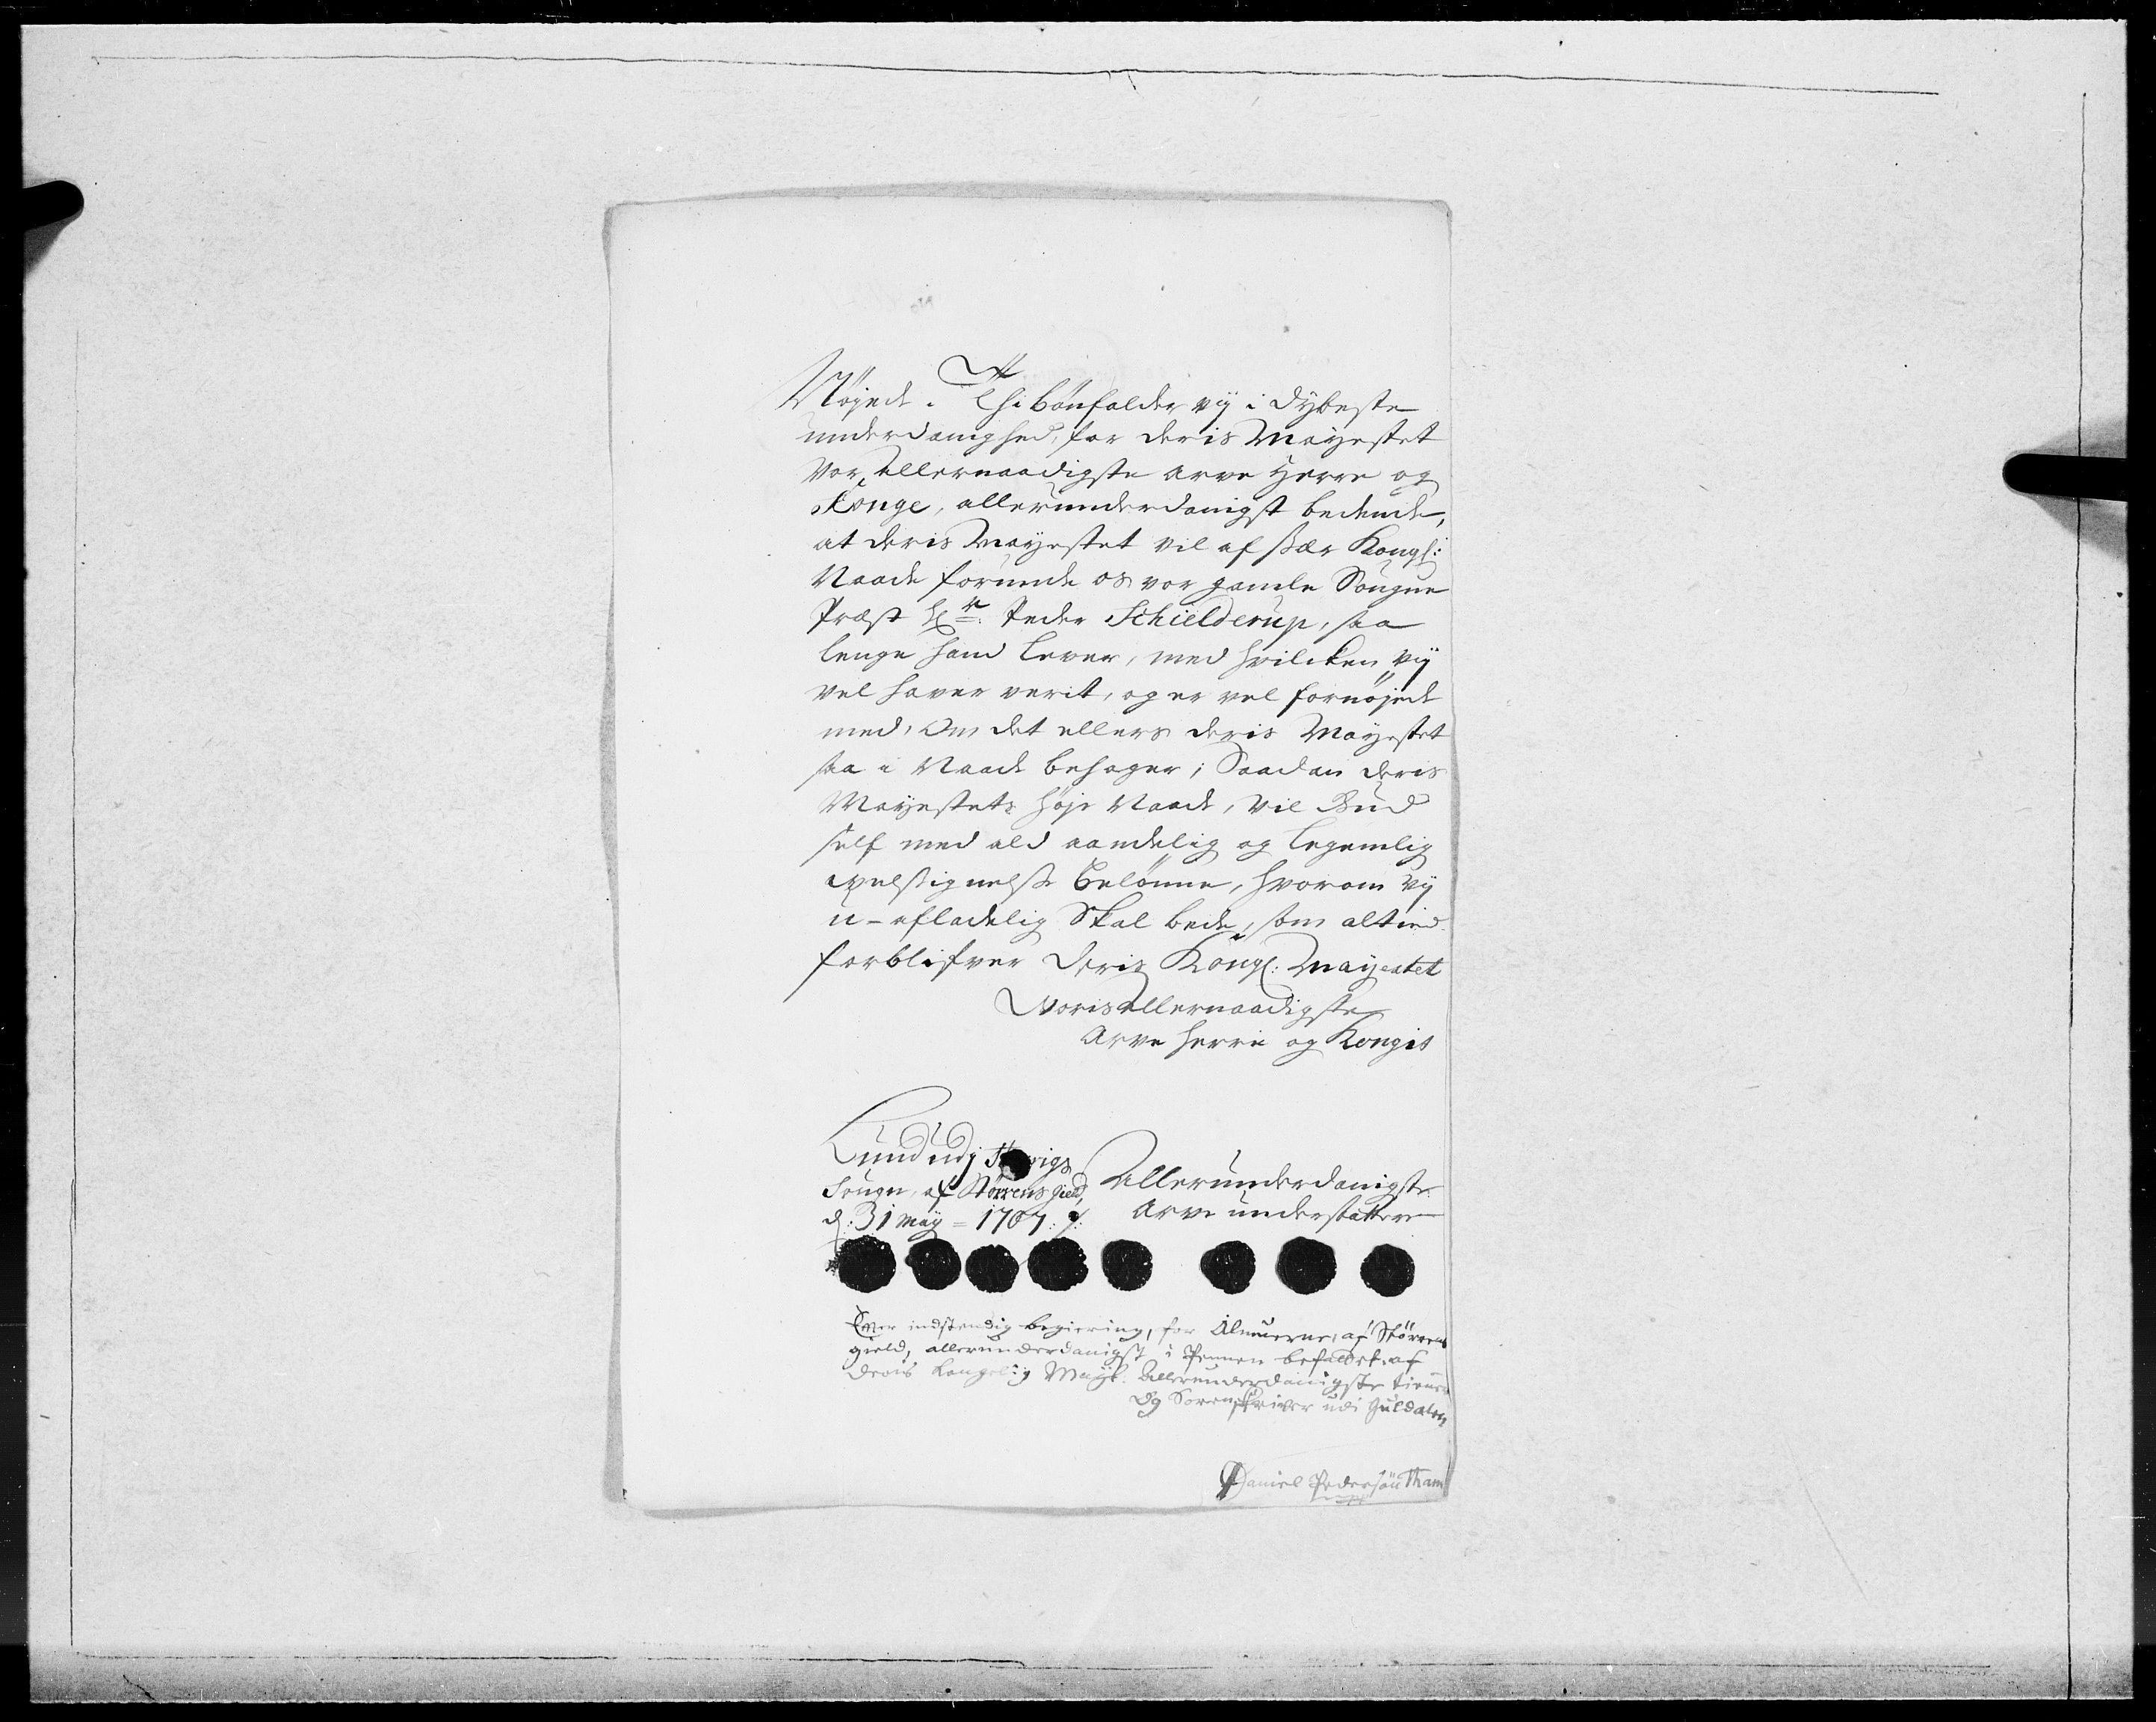 Nøjede. Thi bønfalder vij i dybeste
underdanighed, for deris Mayestet
Vor allernaadigste arve Herre og
Konge, allerunderdanigst bedende,
at deris Mayestet vil af sær Kongl:
Naade forunde os vor gamle Sougne
Præst Hr: Peder Schielderup, saa
lenge hand lever, med hvilcken vij
vel haver verit, og er vel fornøjede
med, Om det ellers deris Mayestet
saa i Naade behager; Saadan deris
Mayestets høje Naade, vil Gud
self med ald aandelig og legemlig
velsignelse belønne, hvorom vij
u-afladelig Skal bede, som altiid
forblifver Deris Kongl: Mayestet
Voris allernaadigste
Arve herre og Kongis
Lund udj
Sougn, af Størrens gield,
d: 31 Maÿ = 1707:
Allerunderdanigste
Arve undersatter
Efter indstendig begiering, for Almuerne, af Størrens
gield, allerunderdanigst i Pennen befattet, af
deris Kongelig Mayt: Allerunderdanigste tienner
Og Sorenskriver udi Guldalen
Daniel Pedersøn Tham